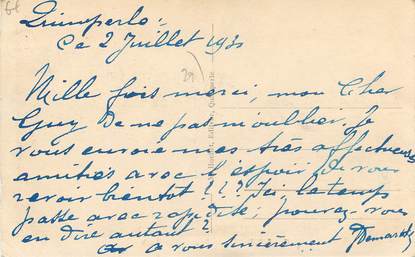 Quimperlé
Ce 2 Juillet 193
29
Mille fois merci, mon Cher
Guy De ne pas m'oublier. Je
vous envoie mes très affectueuses
amitiés avec l'espoir de vous
revoir bientôt ! ? ? Ici le temps
passe avec rapidité, pouvez-vous
en dire autant ?
à vous sincèrement